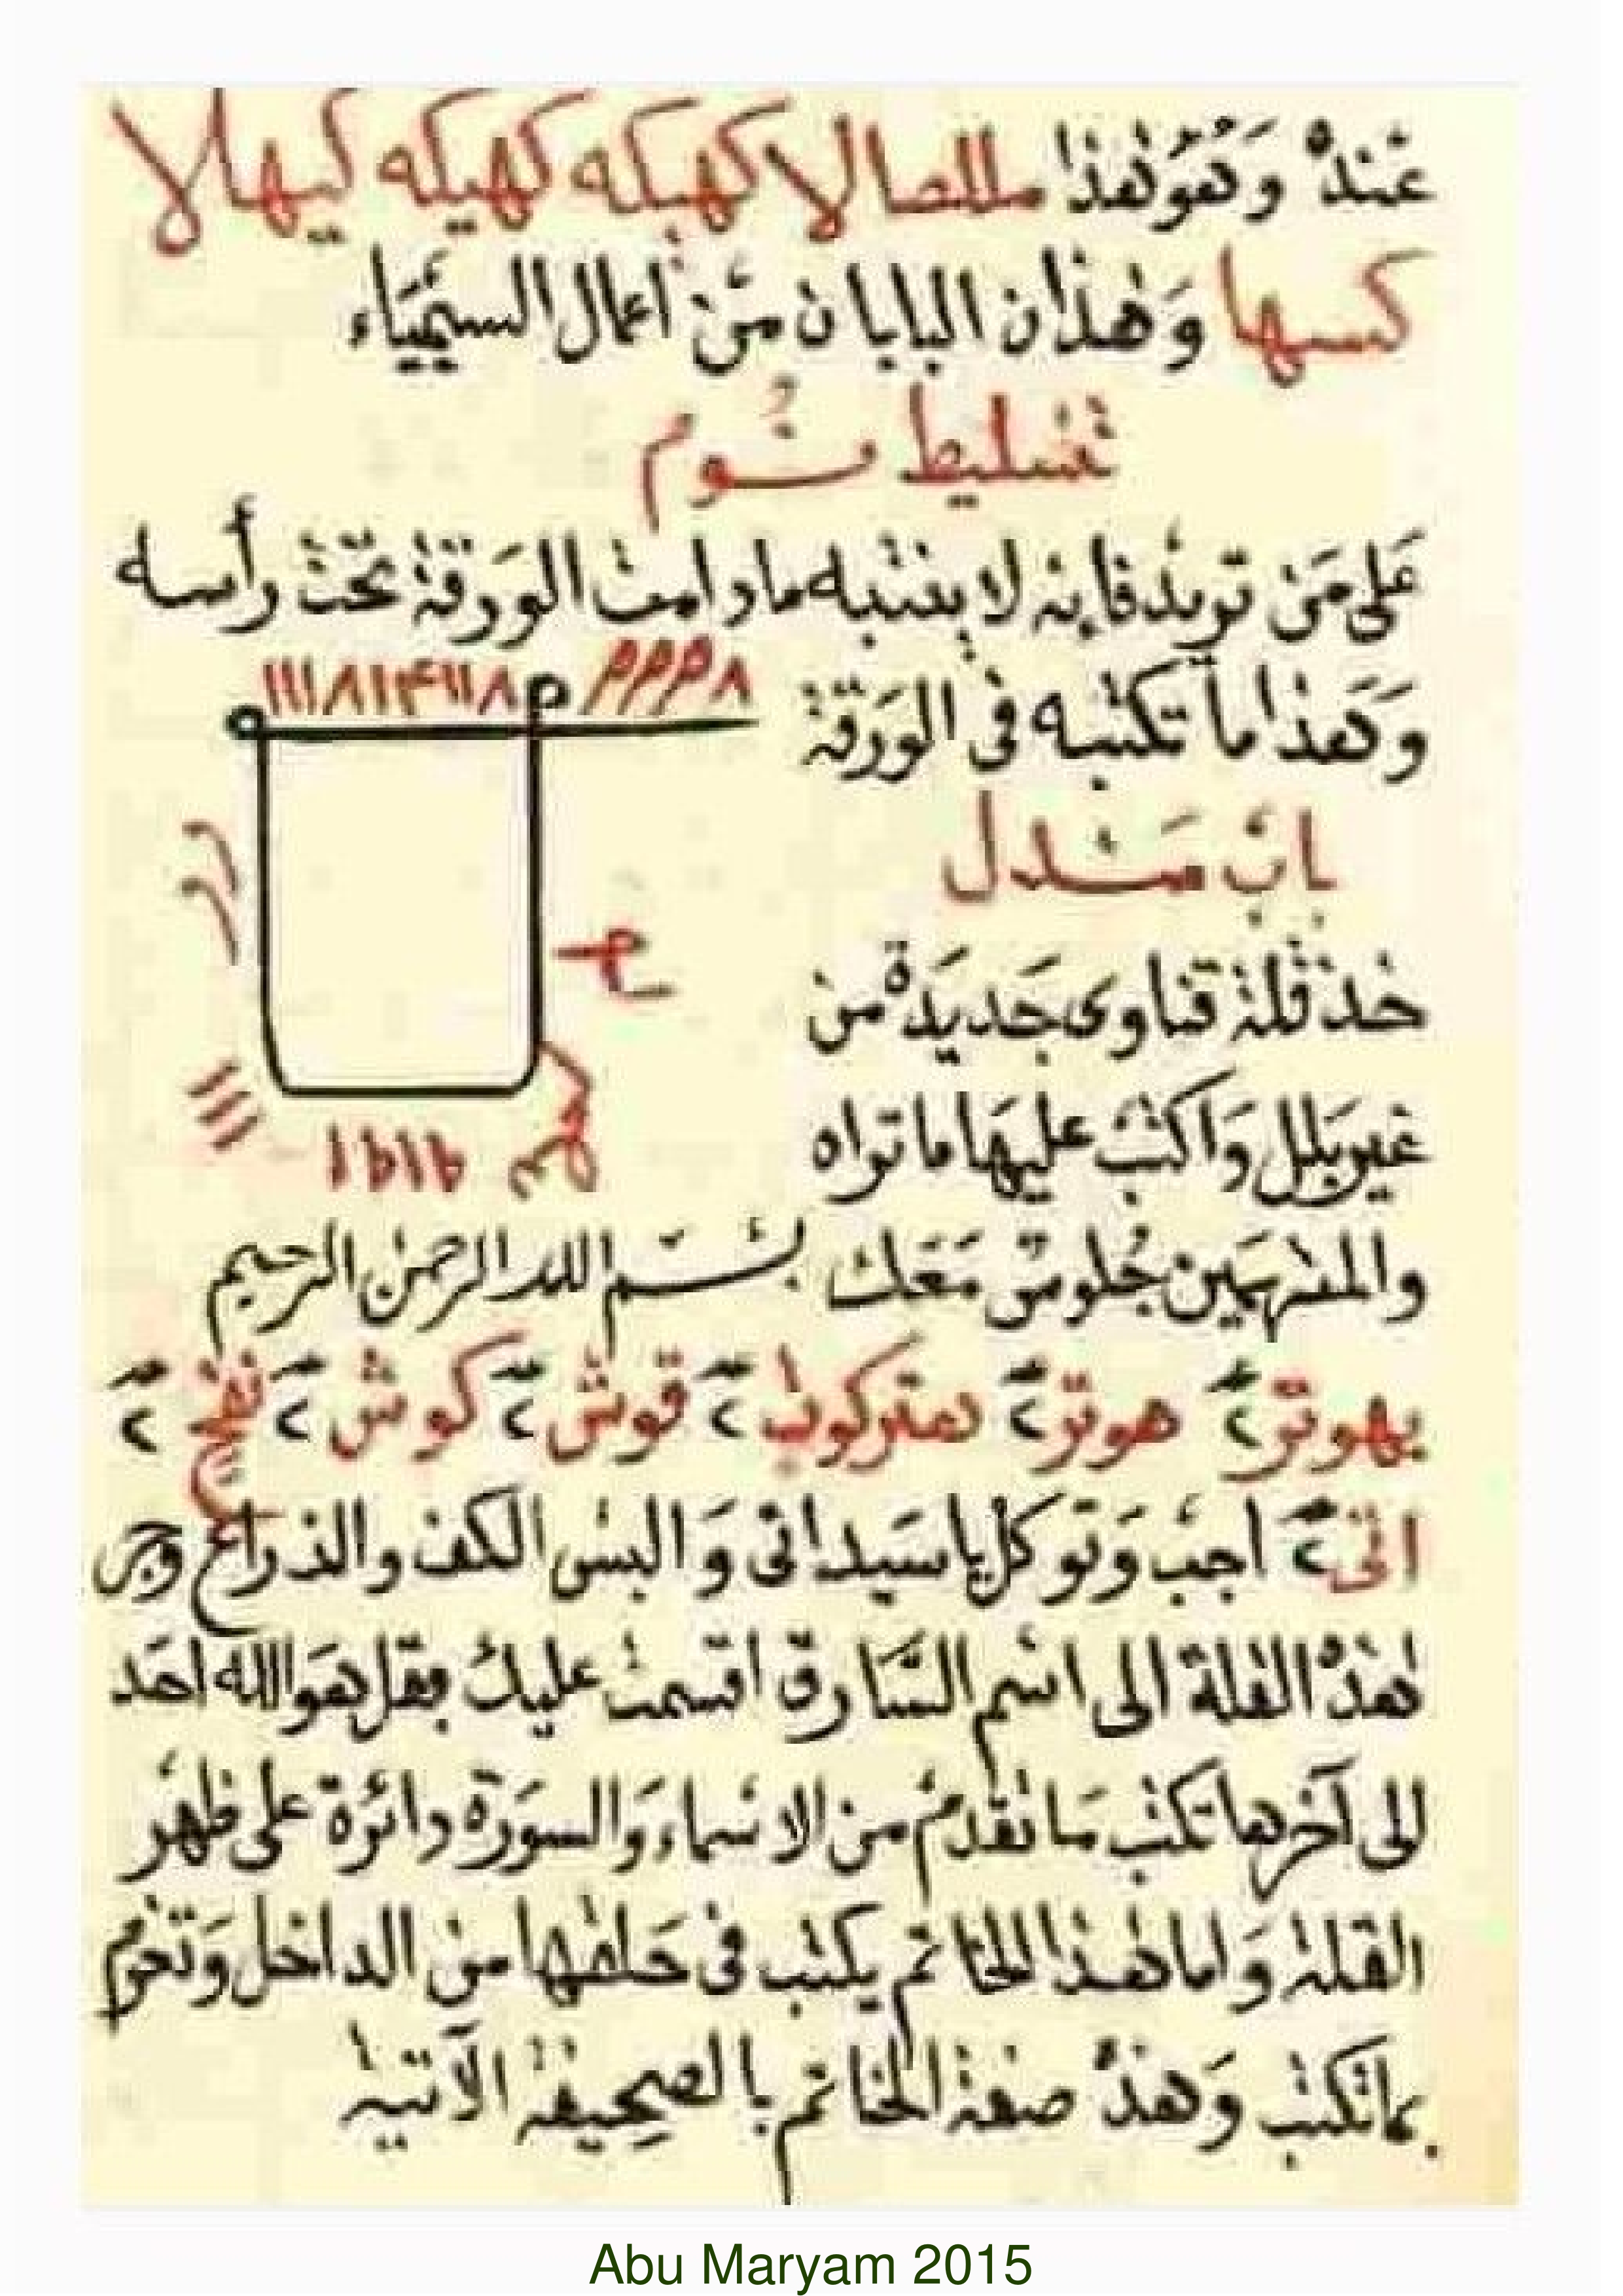 عنده وهو هذا مللصا لا كهيكه كهيكه كيهلا
كسها وهذان البابان من اعمال السيمياء
تسليط نوم
على من تريد فانه لا ينتبه مادامت الورقة تحت رأسه
وهذا ما تكتبه فى الورقة
باب مندل
خذ قلة قناوى جديدة من
غير بلل واكتب عليها ما تراه
والمتهمين جلوس معك بسم الله الرحمن الرحيم
بهوتر ٢ هوتر ٢ ٢ قوش ٢ كوش ٢ ٢
٢ اجب وتوكل يا سيداتى والبس الكف والذراع وجر
هذه القلة الى اسم السارق اقسمت عليك بقل هو الله احد
الى آخرها تكتب ما تقدم من الاسماء والسورة دائرة على ظهر
القلة واما هذا الخاتم يكتب فى حلقها من الداخل وتعزم
بما تكتب وهذه صفة الخاتم بالصحيفة الآتية
Abu Maryam 2015